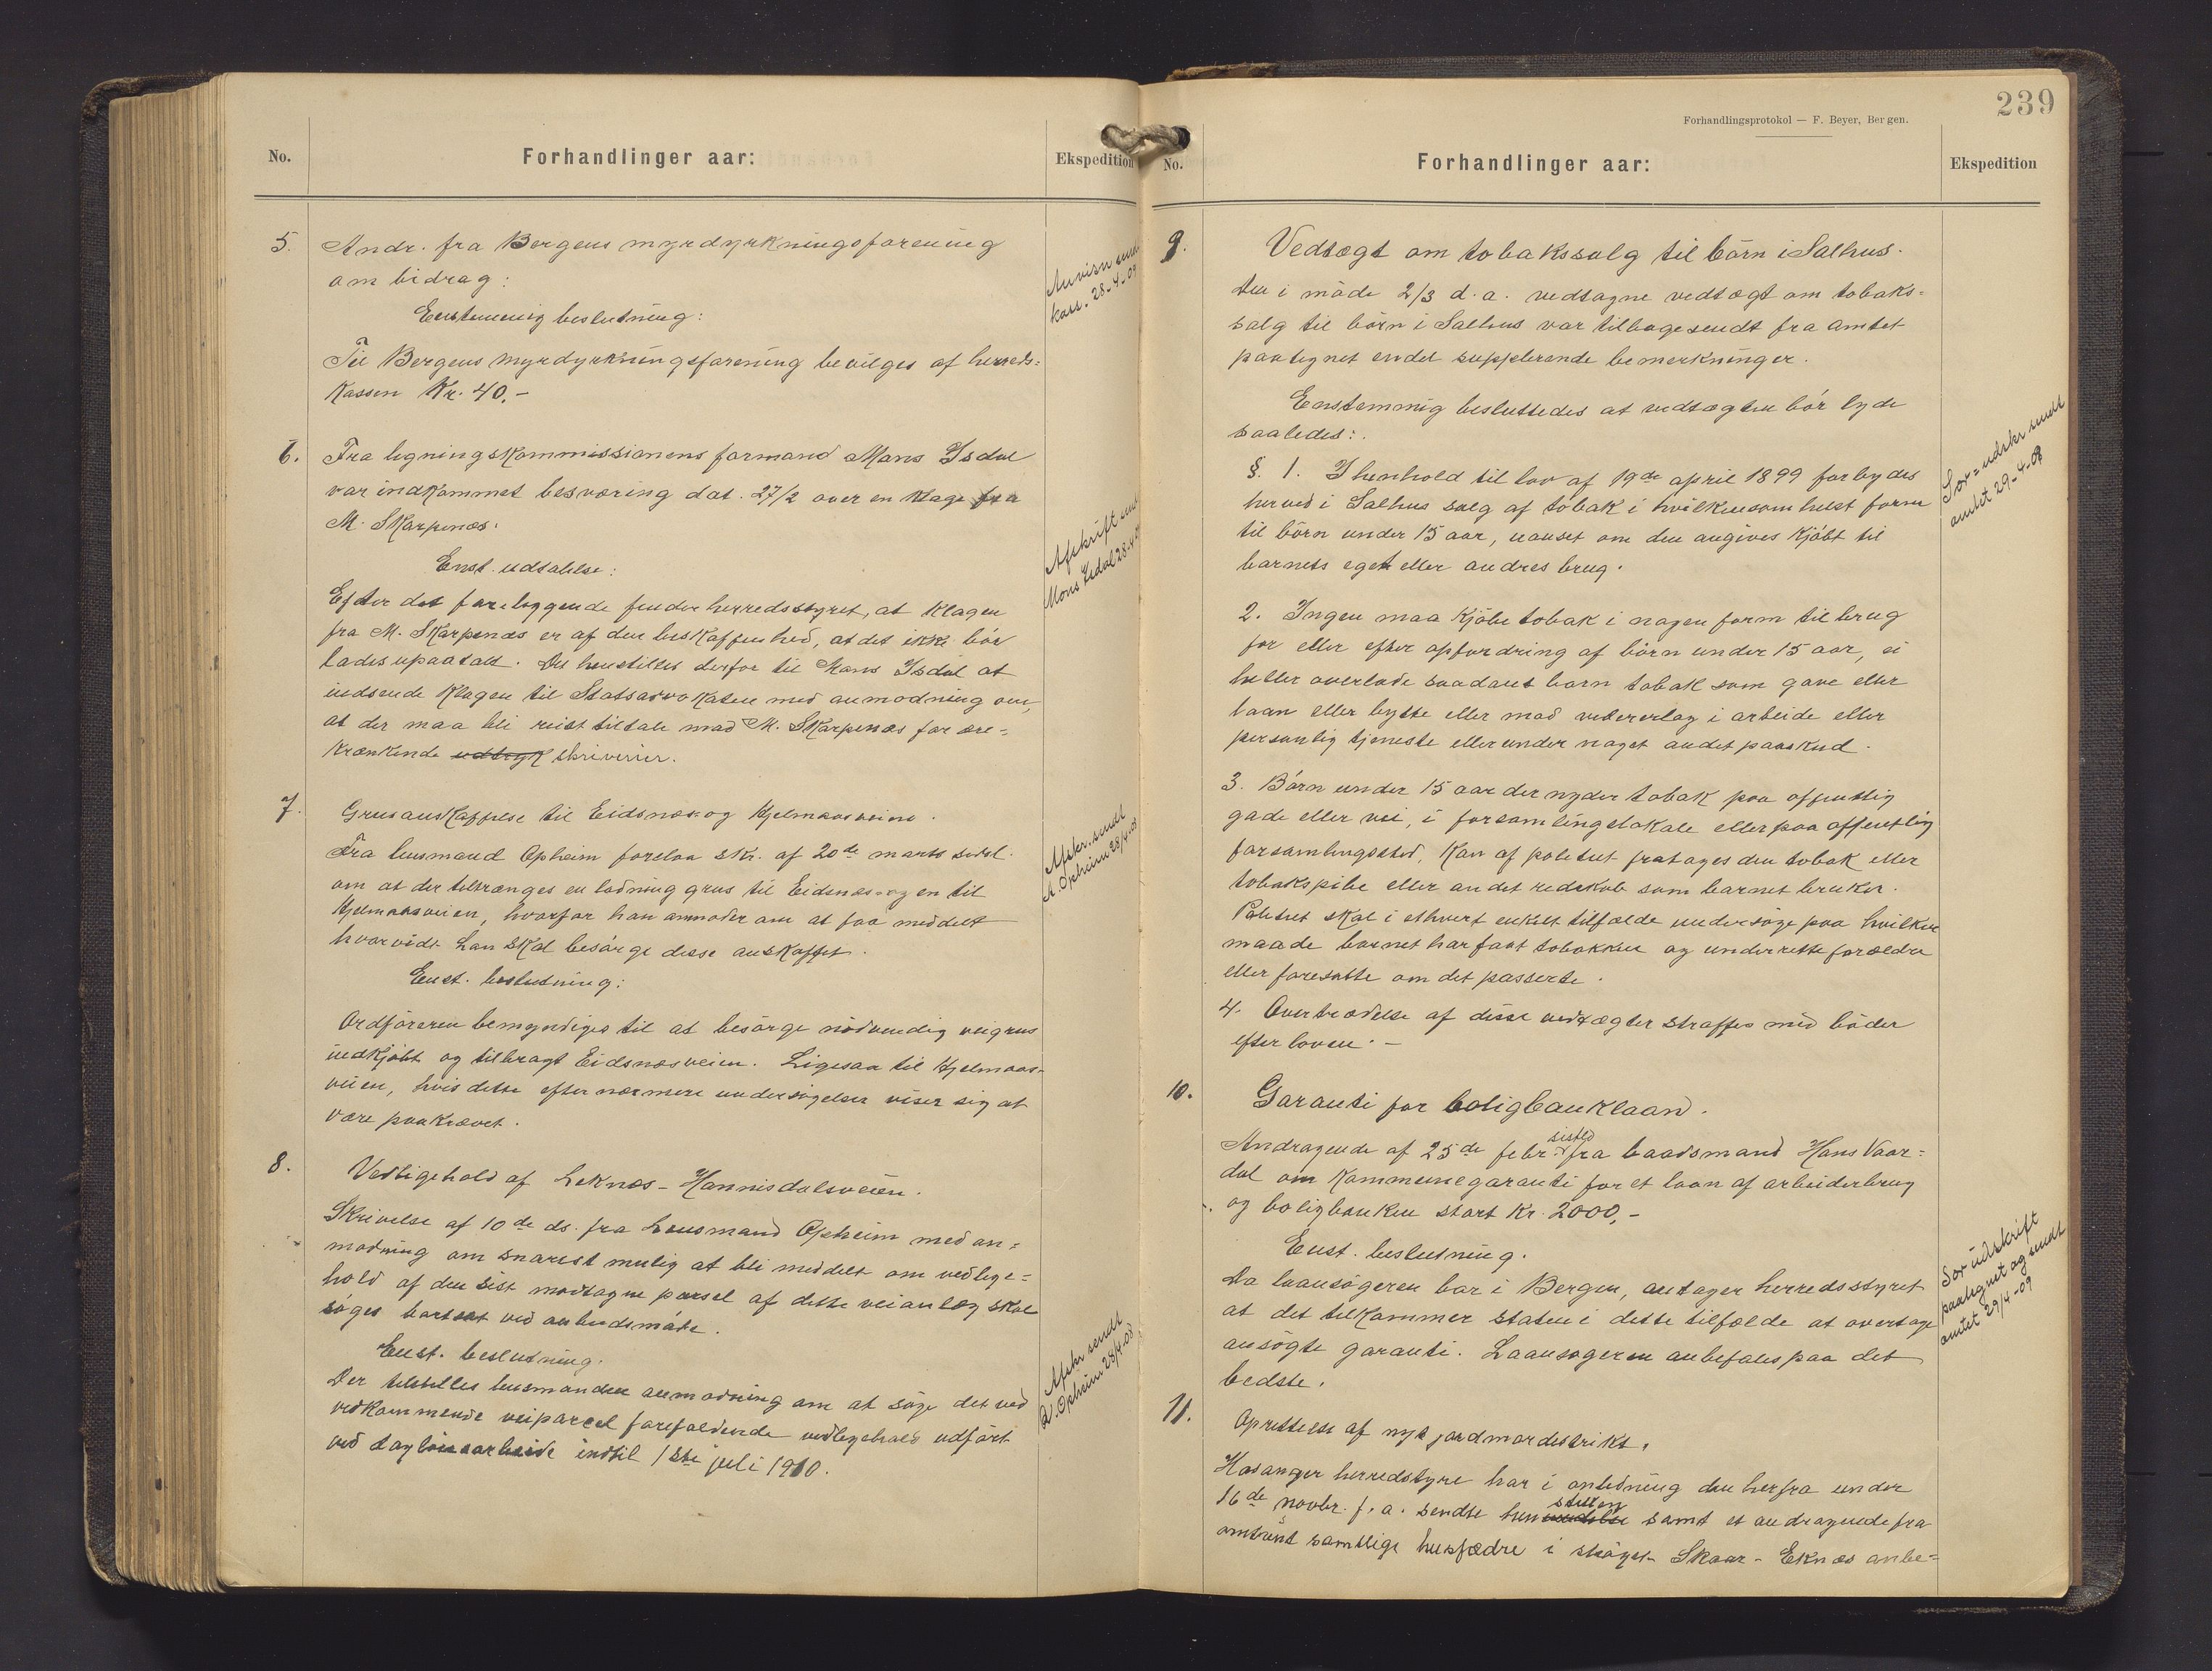 No.
Forhandlinger aar:
Ekspedition
5.
Andr. fra Bergens myrdyrkningsforening
om bidrag:
Enstemmig beslutning:
Til Bergens myrdyrkningsforening bevilges af herreds=
kassen Kr. 40.-
Anvisn send
kass. 28-4-09
6.
Fra ligningskommissionens formand Mons Isdal
var indkommet besværing dat. 27/2 over en klage fra
M. Skarpenæs:
Enst. udtalelse:
Efter det foreliggende finder herredsstyret, at klagen
fra M. Skarpenæs er af den beskaffenhed, at det ikke bör
lades upaatalt. Det henstilles derfor til Mons Isdal at
indsende klagen til Statsadvokaten med anmodning om,
at der maa bli reist tiltale mod M. Skarpenæs for ære=
krænkende udtryk skriverier.
Afskrift send
Mons Isdal 28-4
7.
Grusanskaffelse til Eidsnæs- og Hjelmaasveiene.
Fra lensmand Opheim forelaa skr. af 20de marts sidstl.
om at der tiltrænges en ladning grus til Eidsnæs- og en til
Hjelmaasveien, hvorfor han anmoder om at faa meddelt
hvorvidt han skal besörge disse anskaffet.
Enst. beslutning:
Ordföreren bemyndiges til at besörge nödvendig veigrus
indkjöbt og tilbragt Eidsnæsveien. Ligesaa til Hjelmaas-
veien, hvis dette efter nærmere undersögelser viser sig at
være paakrævet.
Afskr. sendt
A. Opheim 28/4-09
8.
Vedligehold af Leknæs - Hannisdalsveien.
Skrivelse af 10de ds. fra Lensmand Opheim med an=
modning om snarest mulig at bli meddelt om vedlige=
hold af den sist modtagne parsel af dette veianlæg skal
söges bortsat ved anbudsmåte.
Enst. beslutning.
Der tilstilles lensmanden anmodning om at söge det ved
vedkommende veiparcel forefaldende vedligehold udfört
ved daglönsarbeide indtil 1ste juli 1910.
Afskr sendt
A. Opheim 28/4-09
239
Forhandlingsprotokol — F. Beyer, Bergen.
No.
Forhandlinger aar:
Ekspedition
9.
Vedtægt om tobakssalg til börn i Salhus.
Den i möde 2/3 d.a. vedtagne vedtægt om tobaks=
salg til börn i Salhus var tilbagesendt fra amtet
paategnet endel supplerende bemerkninger.
Enstemmig besluttedes at vedtægten bör lyde
saaledes:
§. 1. I henhold til lov af 19de april 1899 forbydes
herved i Salhus salg af tobak i hvilkensomhelst form
til börn under 15 aar, uanset om den angives kjöbt til
barnets eget eller andres brug.
2. Ingen maa kjöbe tobak i nogen form til brug
for eller efter opfordring af börn under 15 aar, ei
heller overlade saadant barn tobak som gave eller
laan eller bytte eller mod vederlag i arbeide eller
personlig tjeneste eller under noget andet paaskud.
3. Börn under 15 aar der nyder tobak paa offentlig
gade eller vei, i forsamlingslokale eller paa offentlig
forsamlingssted, kan af politiet fratages den tobak eller
tobakspibe eller andet redskab som barnet bruker.
Politiet skal i ethvert enkelt tilfælde undersöge paa hvilken
maade barnet har faat tobakken og underrette forældre
eller foresatte om det passerte.
4. Overtrædelse af disse vedtægter straffes med böder
efter loven.-
Sær=udskr sendt
amtet 29-4-09
10.
Garanti for boligbanklaan.
Andragende af 25de febr. sistl fra baadsmand Hans Vaar=
dal om kommunegaranti for et laan af arbeiderbrug
og boligbanken stort Kr. 2000,-
Enst. beslutning.
Da laansögeren bor i Bergen, antager herredsstyret
at det tilkommer staten i dette tilfælde at overtage
ansögte garanti. Laansögeren anbefales paa det
bedste.
Sær udskrift
paategnet og sendt
amtet 29/4-09
11.
Oprettelse af nyt jordmordistrikt.
Hosanger herredstyre har i anledning den herfra under
16de novbr. f.a. sendte henvendelse stillen samt et andragende fra
omtrent samtlige husfædre i ströget Skaar - Eknæs anbe=